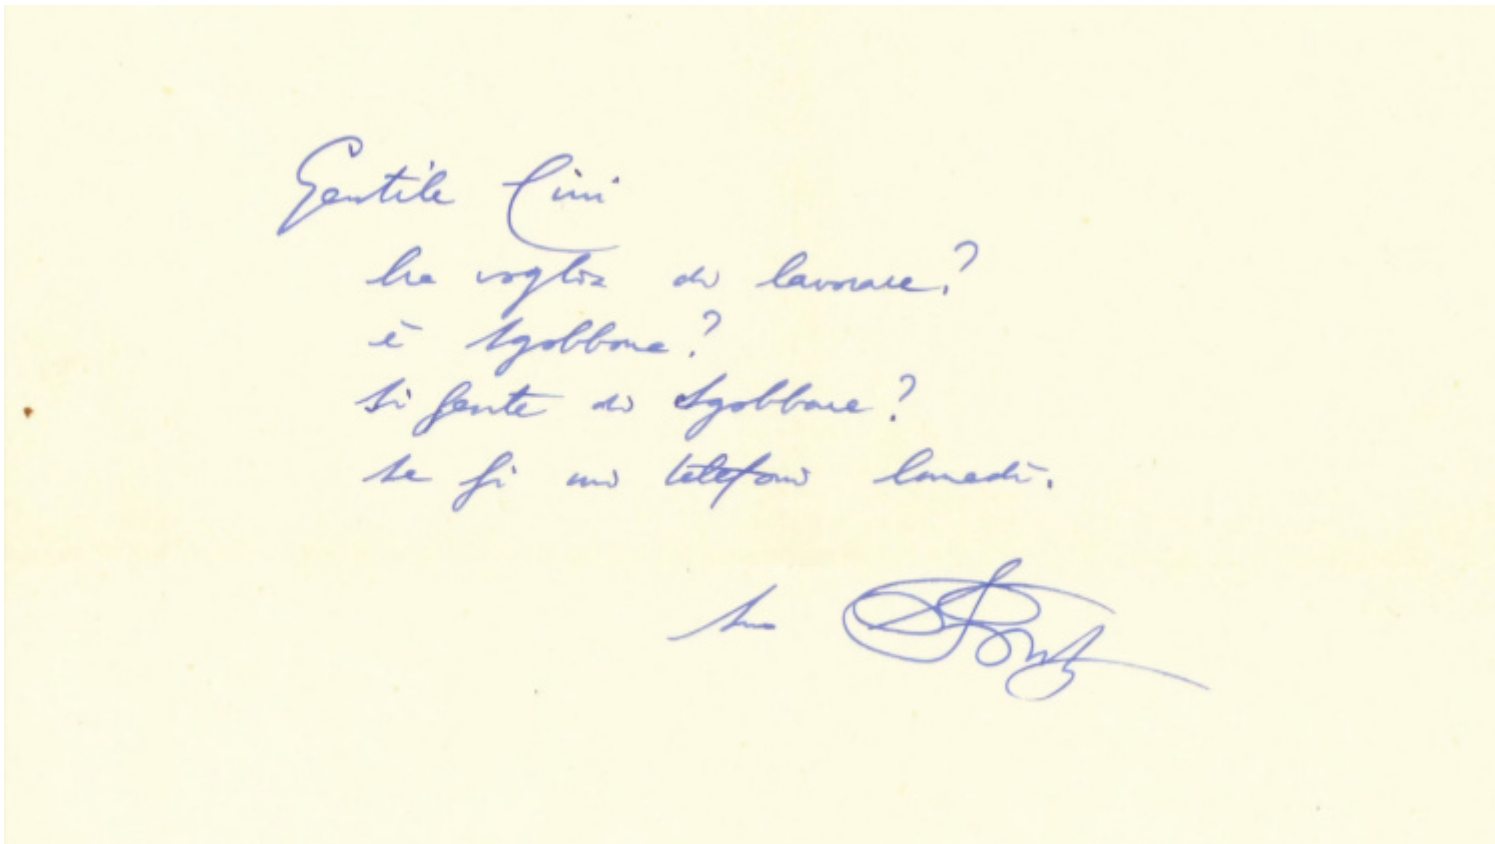 Gentile Cini
ha voglia di lavorare?
è sgobbone?
si sente di sgobbare?
se sì mi telefoni lunedì.
suo Ponti